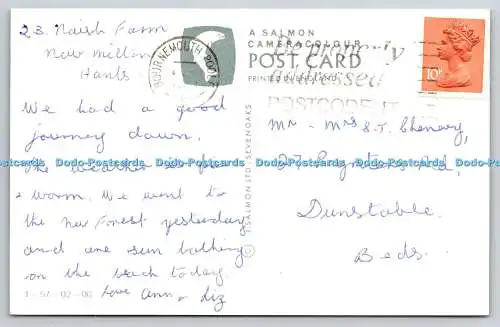 23. Naish Farm
New Milton
Hants.
We had a good
journey down,
the weather is
warm. We went to
the New Forest yesterday
and are sun bathing
on the beach today.
love Ann & Liz
1-57-02-00
BOURNEMOUTH POOLE
A SALMON
CAMERACOLOUR
POST CARD
PRINTED IN ENGLAND
Be properly
addressed
POSTCODE IT
© J. SALMON LTD. SEVENOAKS
10P
Mr - Mrs S.J. Chenery,
27
Dunstable.
Beds.
Dodo-Postcards Dodo-Postcards Dodo-Postcards Dodo-Postcards Dodo-Postcards